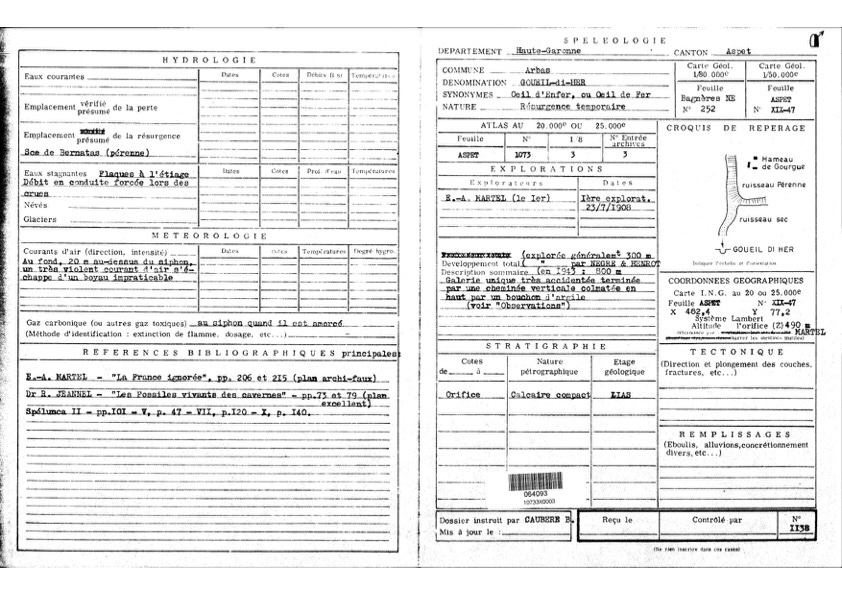 HYDROLOGIE
Eaux courantes
Dates Cotes Débits (l/s) Températures
Emplacement vérifié présumé de la perte
Emplacement présumé de la résurgence
Sce de Bernatas (pérenne)
Eaux stagnantes Flaques à l'étiage
Dates Cotes Prof. d'eau Températures
Débit en conduite forcée lors des
crues
Névés
Glaciers
METEOROLOGIE
Courants d'air (direction, intensité)
Dates Cotes Températures Degré hygro.
Au fond, 20 m au-dessus du siphon,
un très violent courant d'air s'é-
chappe d'un boyau impraticable
Gaz carbonique (ou autres gaz toxiques) au siphon quand il est amorcé
(Méthode d'identification : extinction de flamme, dosage, etc...)
REFERENCES BIBLIOGRAPHIQUES principales:
E.-A. MARTEL - "La France ignorée", pp. 206 et 215 (plan archi-faux)
Dr R. JEANNEL - "Les Fossiles vivants des cavernes" - pp.73 et 79 (plan
excellent)
Spélunca II - pp.IOI - V, p. 47 - VII, p.I20 - X, p. I40.
SPELEOLOGIE
DEPARTEMENT Haute-Garonne CANTON Aspet
COMMUNE Arbas
DENOMINATION GOUEIL-di-HER
SYNONYMES Oeil d'Enfer, ou Oeil de Fer
NATURE Résurgence temporaire
Carte Géol.
1/80.000e
Feuille
Bagnères NE
N° 252
Carte Géol.
1/50.000e
Feuille
ASPET
N° XIX-47
ATLAS AU 20.000e OU 25.000e
Feuille N° 1/8 N° Entrée archives
ASPET 1073 3 3
EXPLORATIONS
Explorateurs Dates
E.-A. MARTEL (le Ier) Ière explorat.
23/7/1908
(explorée générale: 300 m
Developpement total ( " par NEGRE & HENROT
Description sommaire (en 1945 : 800 m
Galerie unique très accidentée terminée
par une cheminée verticale colmatée en
haut par un bouchon d'argile
(voir "Observations")
CROQUIS DE REPERAGE
Hameau
de Gourgue
ruisseau Pérenne
ruisseau sec
GOUEIL DI HER
Indiquer l'échelle et l'orientation
COORDONNEES GEOGRAPHIQUES
Carte I.N.G. au 20 ou 25.000e
Feuille ASPET N° XIX-47
X 482,4 Y 77,2
Système Lambert
Altitude l'orifice (Z) 490 m
MARTEL
STRATIGRAPHIE
Cotes
de à
Nature
pétrographique
Etage
géologique
Orifice Calcaire compact LIAS
TECTONIQUE
(Direction et plongement des couches,
fractures, etc...)
REMPLISSAGES
(Eboulis, alluvions, concrétionnement
divers, etc...)
064093
10733X0003
Dossier instruit par CAUBERE B.
Mis à jour le :
Reçu le
Contrôlé par
N°
II38
(Ne rien inscrire dans ces cases)